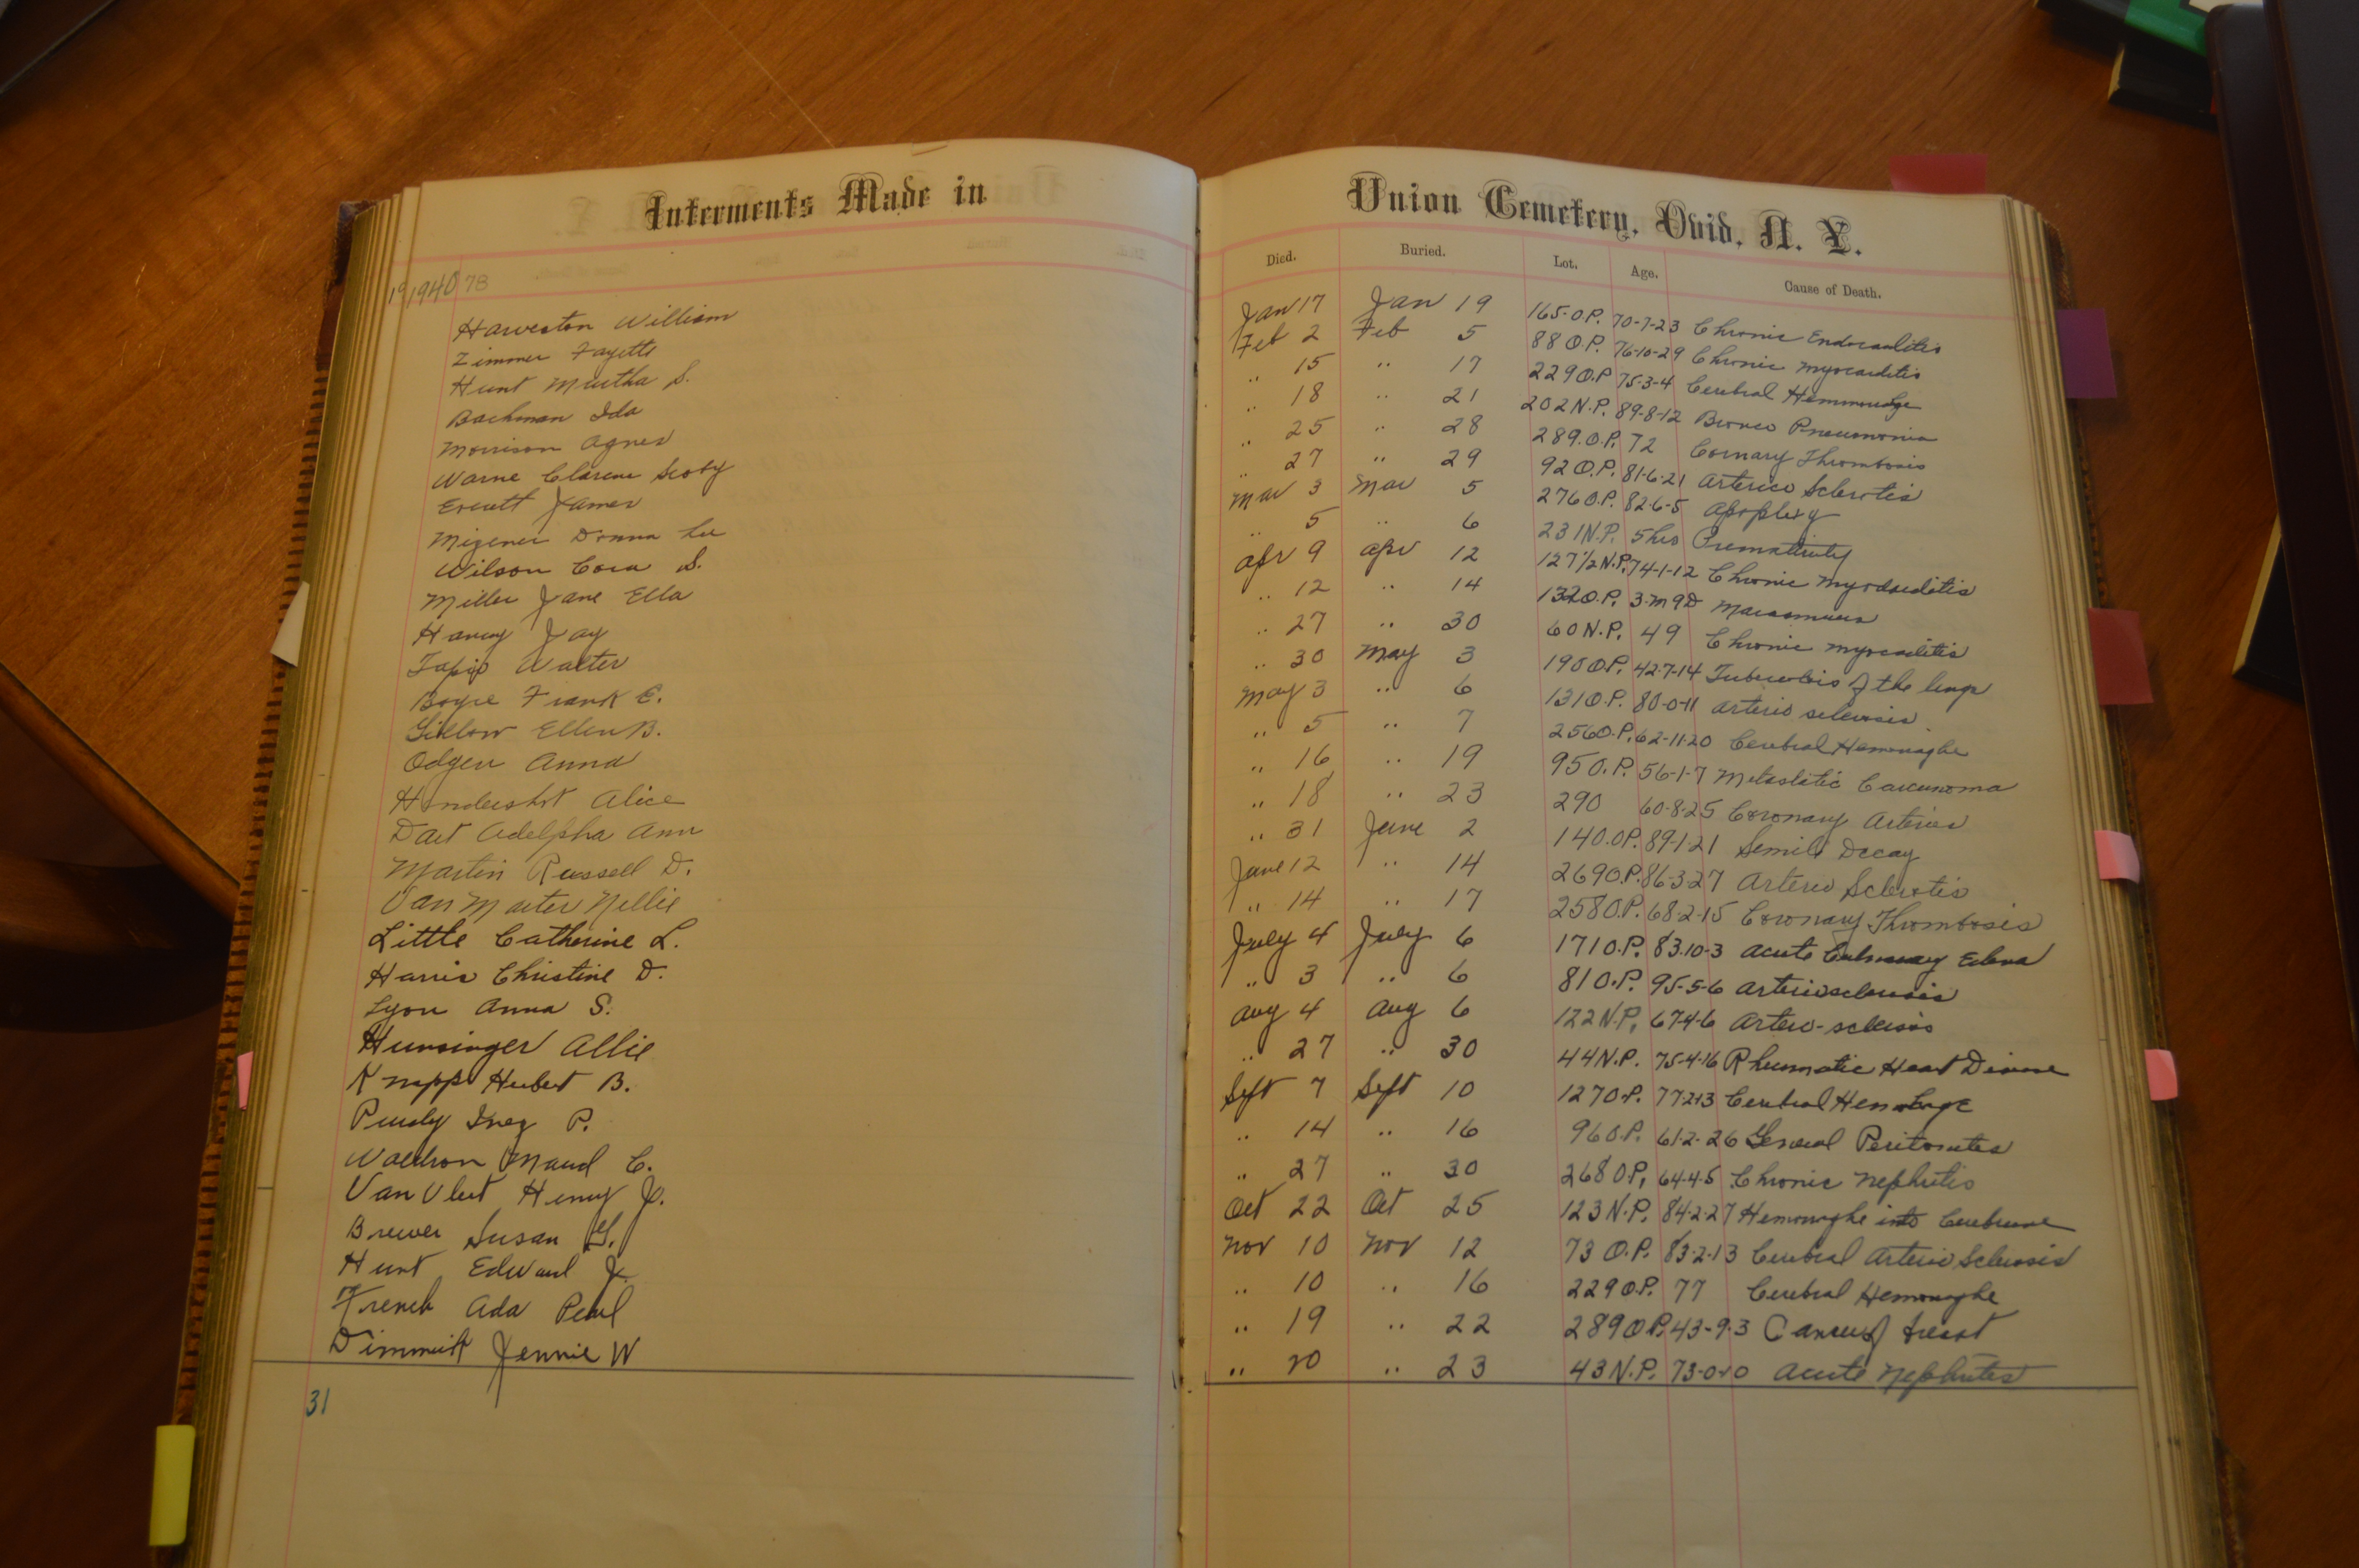 Interments Made in
1940 78
Harveston William
Zimmer Fayette
Hunt Martha S.
Bachman Ida
Morrison Agnes
Warne Clarence Scoby
Everett James
Mizener Donna Lee
Wilson Cora S.
Miller Jane Ella
Harvey Jay
Walter
Boyce Frank E.
Gillow Ellen B.
Odgen Anna
Hendershot Alice
Dart Adelpha Ann
Martin Russell D.
Van Marter Nellie
Little Catherine L.
Harris Christine D.
Lyon Anna S.
Hunsinger Allie
Knapp Hubert B.
Purdy Inez P.
Waldron Maud C.
Van Vleet Henry J.
Brewer Susan G.
Hunt Edward J.
French Ada Pearl
Dimmick Jennie W
31
Union Cemetery, Ovid, N. Y.
Died. Buried. Lot. Age. Cause of Death.
Jan 17 Jan 19 165-O.P. 70-7-23 Chronic Endocarditis
Feb 2 Feb 5 88 O.P. 76-10-29 Chronic Myocarditis
.. 15 .. 17 229 O.P 75-3-4 Cerebral Hemmorage
.. 18 .. 21 202 N.P. 89-8-12 Bronco Pneumonia
.. 25 .. 28 289.O.P. 72 Cornary Thrombosis
.. 27 .. 29 92 O.P. 81-6-21 Arterico Sclerotis
Mar 3 Mar 5 276 O.P. 82-6-5 Apoplexy
.. 5 .. 6 231 N.P. 5 hrs Prematurity
Apr 9 Apr 12 127 1/2 N.P. 74-1-12 Chronic Myocarditis
.. 12 .. 14 132 O.P. 3-M 9 D
.. 27 .. 30 60 N.P. 49 Chronic Myocarditis
.. 30 May 3 190 O.P. 42-7-14 Tuberculois of the lungs
May 3 .. 6 131 O.P. 80-0-11 Arterio sclerosis
.. 5 .. 7 256 O.P. 62-11-20 Cerebral Hemorraghe
.. 16 .. 19 95 O.P. 56-1-7 Metastatic Carcunoma
.. 18 .. 23 290 60-8-25 Coronary Arteries
.. 31 June 2 140.O.P. 89-1-21 Senile Decay
June 12 .. 14 269 O.P. 86-3-27 Arterio Sclerotis
.. 14 .. 17 258 O.P. 68-2-15 Coronary Thrombosis
July 4 July 6 171 O.P. 83-10-3 Acute Edema
.. 3 .. 6 81 O.P. 95-5-6 Arteriosclerosis
Aug 4 Aug 6 122 N.P. 67-4-6 Arterio-sclerosis
.. 27 .. 30 44 N.P. 75-4-16 Rheumatic Heart Disease
Sept 7 Sept 10 127 O.P. Cerebral
.. 14 .. 16 96 O.P. 61-2-26 General Peritonites
.. 27 .. 30 268 O.P. 64-4-5 Chronic Nephritis
Oct 22 Oct 25 123 N.P. 84-2-27 Hemorraghe into Cerebrum
Nov 10 Nov 12 73 O.P. 83-2-13 Cerebral Arterio Sclerosis
.. 10 .. 16 229 O.P. 77 Cerebral Hemoraghe
.. 19 .. 22 289 O.P. 43-9-3 Cancer of breast
.. 20 .. 23 43 N.P. Acute Nephrites